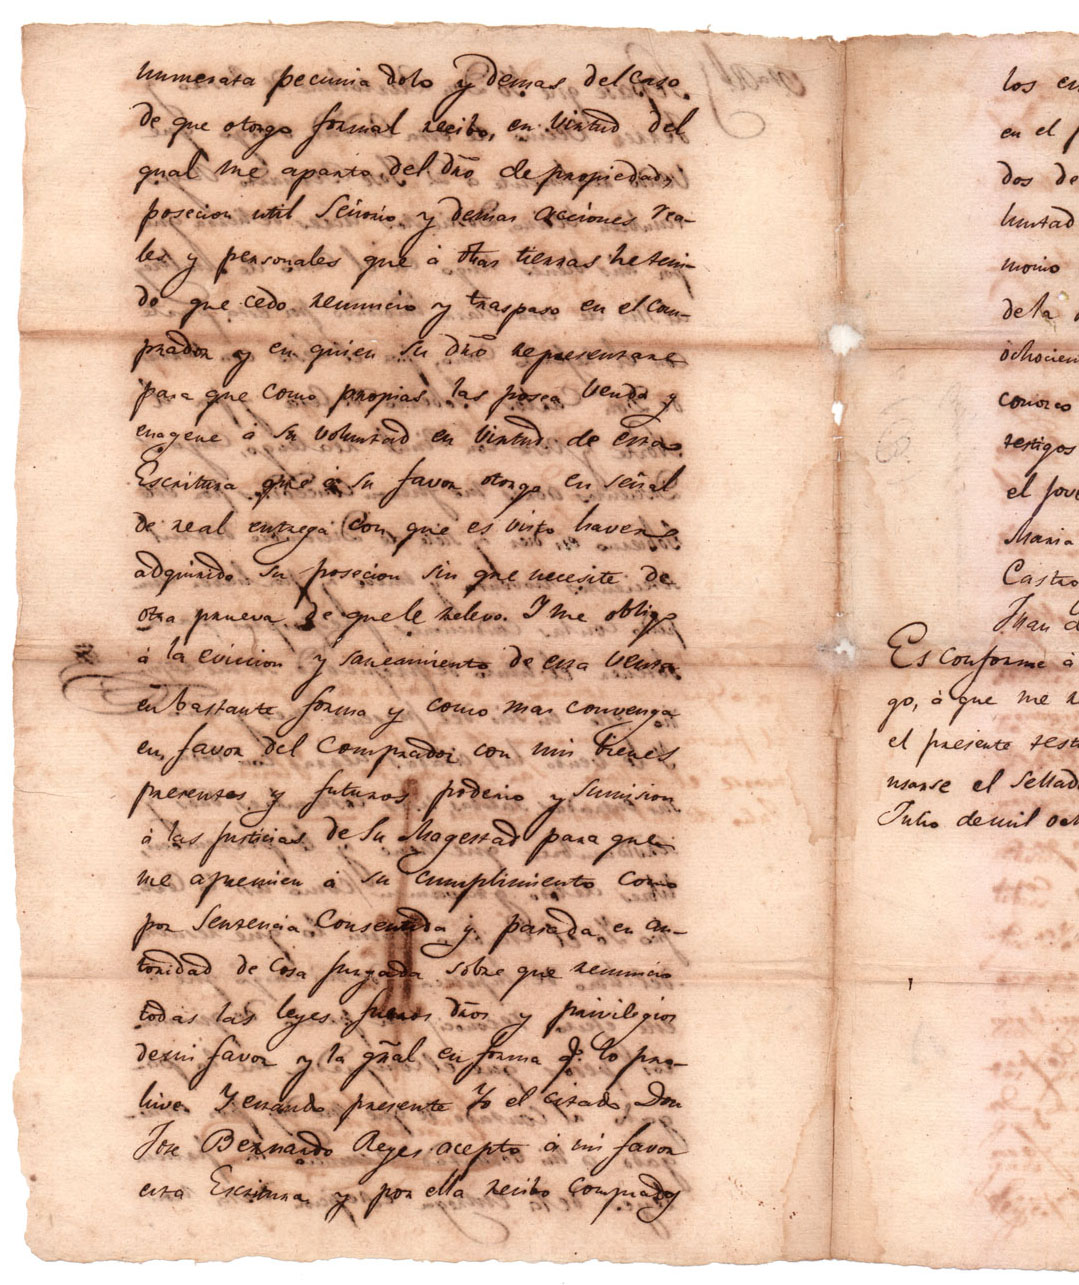 numerata pecunia dolo y demas del caso
de que otorgo formal recibo, en virtud del
qual me aparto del dño de propiedad,
posecion util Señorio y demas acciones rea-
les y personales que á dhas tierras he teni-
do que cedo renuncio y traspaso en el com-
prador y en quien su dño representare
para que como propias las posea venda y
enagene á su voluntad en virtud de esta
Escritura que á su favor otorgo en señal
de real entrega con que es visto haver
adquirido su posecion sin que necesite de
otra prueva de que le relevo. Y me obligo
á la eviccion y saneamiento de esta venta
en bastante forma y como mas convenga
en favor del Comprador con mis bienes
presentes y futuros poderio y sumision
á las Justicias de Su Magestad para que
me apremien á su cumplimiento como
por Sentencia Consentida y pasada en au-
toridad de cosa jusgada sobre que renuncio
todas las leyes fueros dños y privilegios
de mi favor y la gñal en forma q. lo pro-
hive. Y estando presente Yo el citado Don
Jose Bernardo Reyes acepto á mi favor
esta Escritura y por ella recibo comprados
los en
en el p
dos de
luntad
monio
de la
ochocien
conosco
testigos
el Jov
Maria
Castro
Juan d
Es conforme á
go, á que me r
el presente test
usarse el Sellad
Julio de mil och